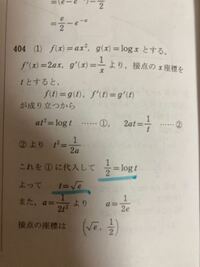 = ε/2 − e^{−α}
404 (1) f(x)=ax², g(x)=log x とする。
f′(x)=2ax, g′(x)=1/x より, 接点の x 座標を
t とすると,
f(t)=g(t), f′(t)=g′(t)
が成り立つから
at²=log t ……①, 2at=1/t ……②
②より t²=1/2a
これを①に代入して 1/2=log t
よって t=√e
また, a=1/2t² より a=1/2e
接点の座標は (√e, 1/2)